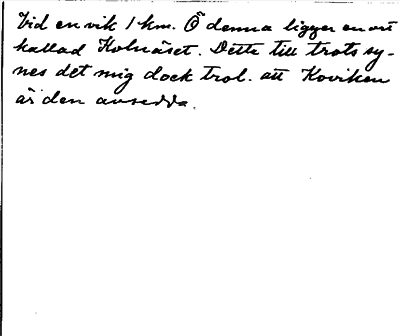 Vid en vik 1 km. Ö denna ligger en ort
kallad Kolnäset. Detta till trots sy-
nes det mig dock trol. att Koviken
är den avsedda.